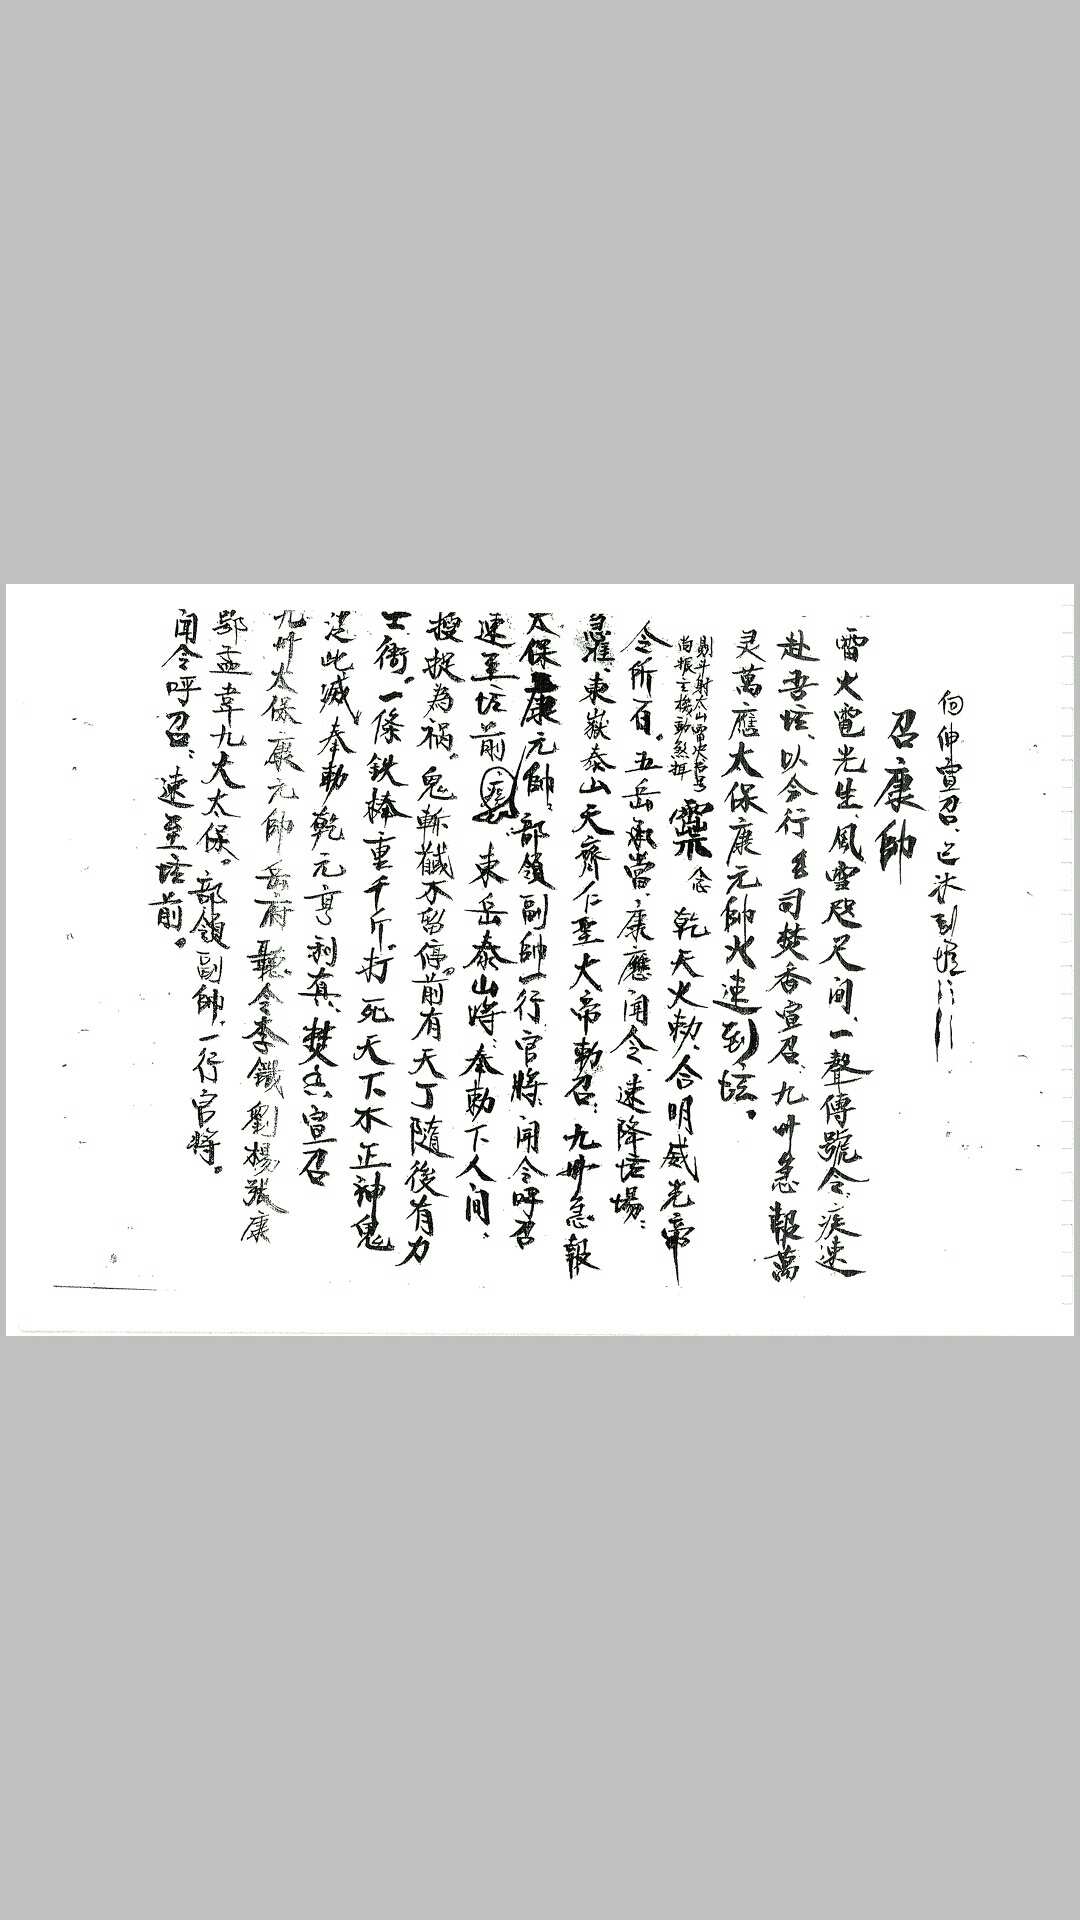 伸宣召、已來到壇
召康帥
雷火電光生、風雲咫尺间、一聲傳號令、疾速
赴吾坛、以今行司焚香宣召、九州急報萬
灵萬應太保康元帥火速到坛。
剔斗射太山雷火
尚振主機動煞
念 乾天火勅、合明威光帝
令所百。五岳承當、康應闻令、速降坛場：
急准、東嶽泰山天齊仁聖大帝勅召：九州急報
太保康元帥、部領副帥一行官將、闻令呼召
速至坛前 東岳泰山將、奉勅下人间、
搜捉為禍。鬼斬馘不暫停。前有天丁隨後有力
士衛。一條鉄棒重千斤、打死天下不正神鬼
從此滅、奉勅乾元亨利真、焚香宣召
九州太保康元帥岳府聽令李鐵劉楊張康
鄂孟韋九大太保。部領副帥、一行官將。
闻令呼召、速至坛前。